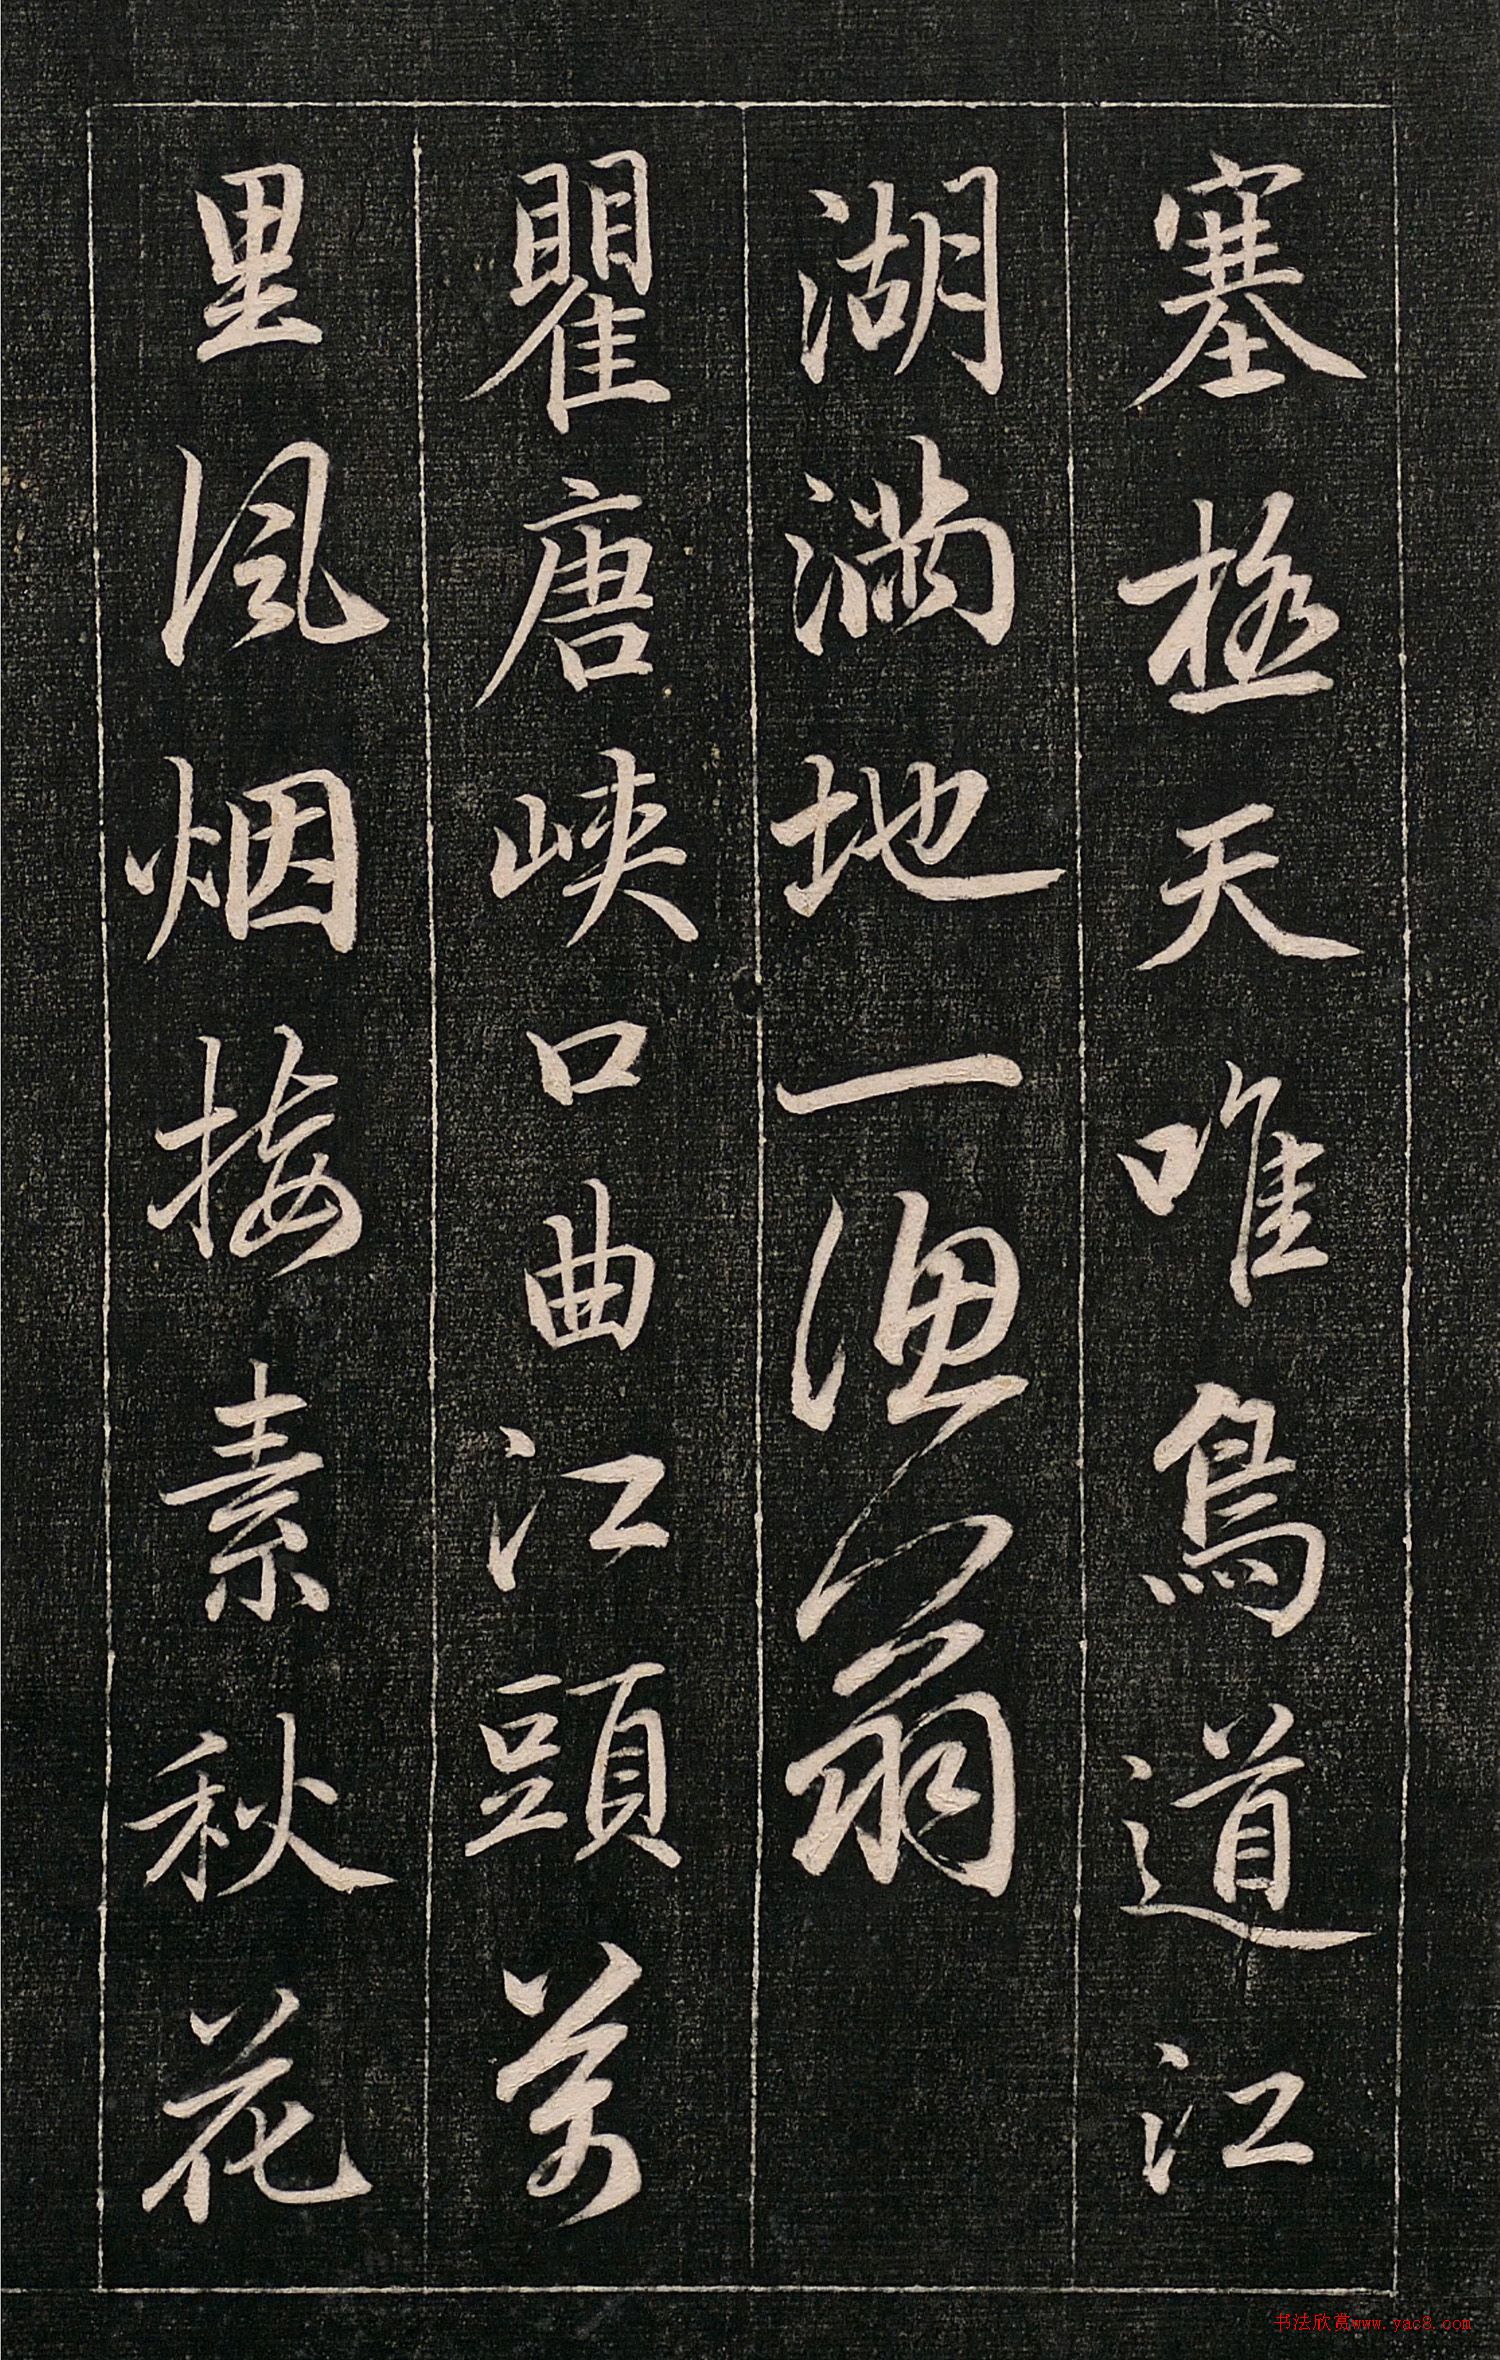 塞極天唯鳥道江
湖滿地一漁翁
瞿唐峽口曲江頭萬
里風烟接素秋花
书法欣赏www.yac8.com